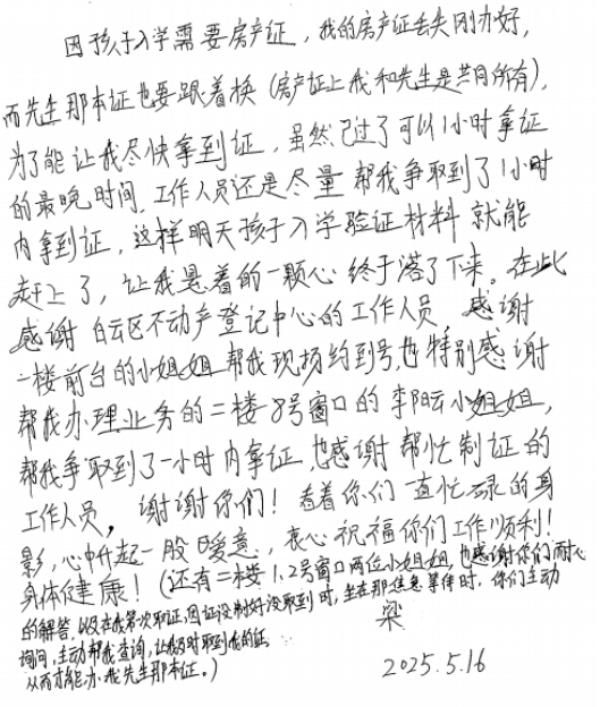 因孩子入学需要房产证，我的房产证丢失刚办好，
而先生那本证也要跟着换（房产证上我和先生是共同所有），
为了能让我尽快拿到证，虽然已过了可以1小时拿证
的最晚时间，工作人员还是尽量帮我争取到了1小时
内拿到证，这样明天孩子入学验证材料就能
赶上了，让我悬着的一颗心终于落了下来。在此
感谢白云区不动产登记中心的工作人员，感谢
一楼前台的小姐姐帮我现场约到号，也特别感谢
帮我办理业务的二楼8号窗口的李阳云小姐姐，
帮我争取到了一小时内拿证，也感谢帮忙制证的
工作人员，谢谢你们！看着你们一直忙碌的身
影，心中升起一股暖意，衷心祝福你们工作顺利！
身体健康！（还有二楼1,2号窗口两位小姐姐，也感谢你们耐心
的解答，以及在我第次取证，因证没制好没取到时，坐在那焦急等待时，你们主动
询问，主动帮我查询，让我及时取到我的证
从而才能办我先生那本证。）
梁
2025.5.16